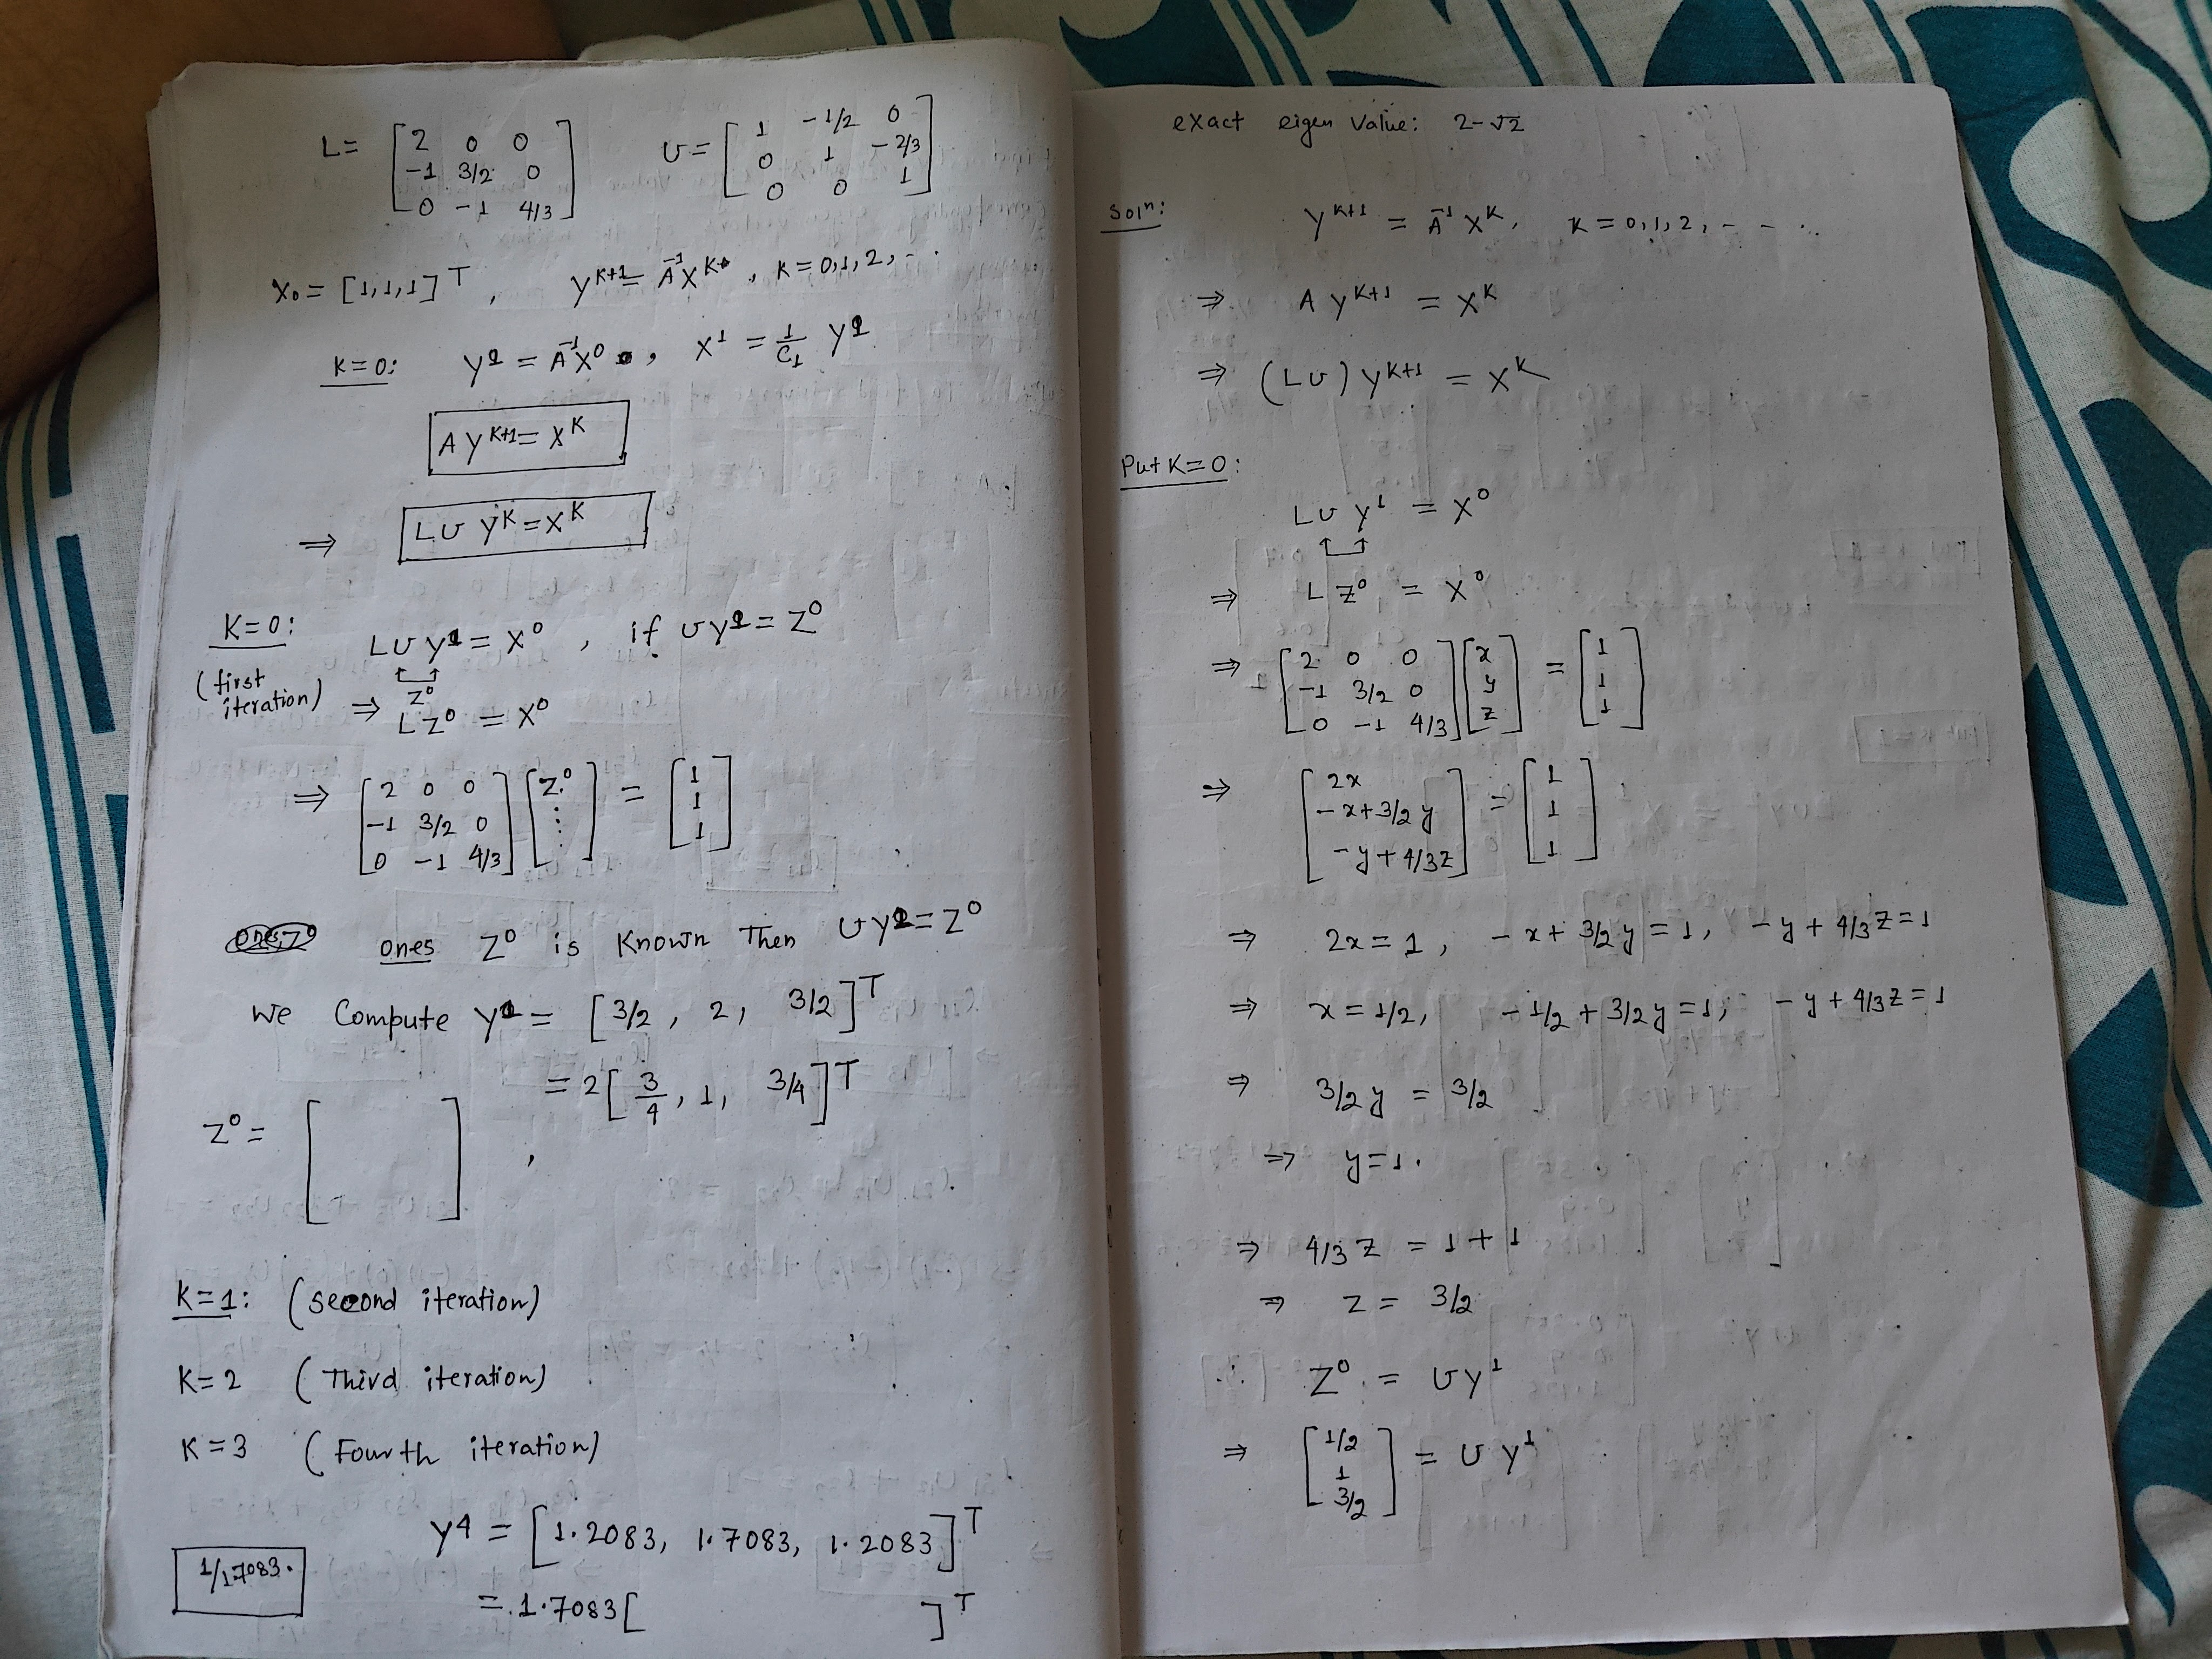 L = [2 0 0; -1 3/2 0; 0 -1 4/3] U = [1 -1/2 0; 0 1 -2/3; 0 0 1]
X₀ = [1,1,1]ᵀ, yᴷ⁺¹ = A⁻¹Xᴷ, K=0,1,2,--.
K=0: y¹ = A⁻¹X⁰, X¹ = 1/C₁ y¹
A yᴷ⁺¹ = Xᴷ
⇒ LU yᴷ = Xᴷ
K=0: LU y¹ = X⁰, if Uy¹ = Z⁰
(first iteration)
Z⁰
⇒ LZ⁰ = X⁰
⇒ [2 0 0; -1 3/2 0; 0 -1 4/3] [Z⁰ ⋮] = [1; 1; 1]
ones Z⁰ is Known Then Uy¹ = Z⁰
We Compute y¹ = [3/2, 2, 3/2]ᵀ
= 2[3/4, 1, 3/4]ᵀ
Z⁰ = [ ] ,
K=1: (second iteration)
K=2 (Third iteration)
K=3 (Fourth iteration)
y⁴ = [1.2083, 1.7083, 1.2083]ᵀ
1/1.7083.
= 1.7083[ ]ᵀ
exact eigen Value: 2-√2
Solⁿ: yᴷ⁺¹ = A⁻¹Xᴷ, K=0,1,2,- - ...
⇒ A yᴷ⁺¹ = Xᴷ
⇒ (LU) yᴷ⁺¹ = Xᴷ
Put K=0:
LU y¹ = X⁰
⇒ L Z⁰ = X⁰
⇒ [2 0 0; -1 3/2 0; 0 -1 4/3] [x; y; z] = [1; 1; 1]
⇒ [2x; -x+3/2 y; -y+4/3 z] = [1; 1; 1]
⇒ 2x = 1, -x+3/2 y = 1, -y+4/3 z = 1
⇒ x = 1/2, -1/2+3/2 y = 1, -y+4/3 z = 1
⇒ 3/2 y = 3/2
⇒ y=1.
⇒ 4/3 z = 1+1
⇒ z = 3/2
∴ Z⁰ = Uy¹
⇒ [1/2; 1; 3/2] = U y¹